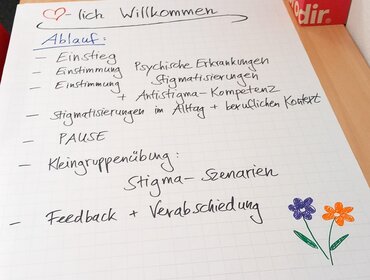 ♡-lich Willkommen
Ablauf:
- Einstieg
- Einstimmung Psychische Erkrankungen
- Einstimmung Stigmatisierungen
+ Antistigma-Kompetenz
- Stigmatisierungen im Alltag + beruflichen Kontext
- PAUSE
- Kleingruppenübung:
Stigma-Szenarien
- Feedback + Verabschiedung
dir.